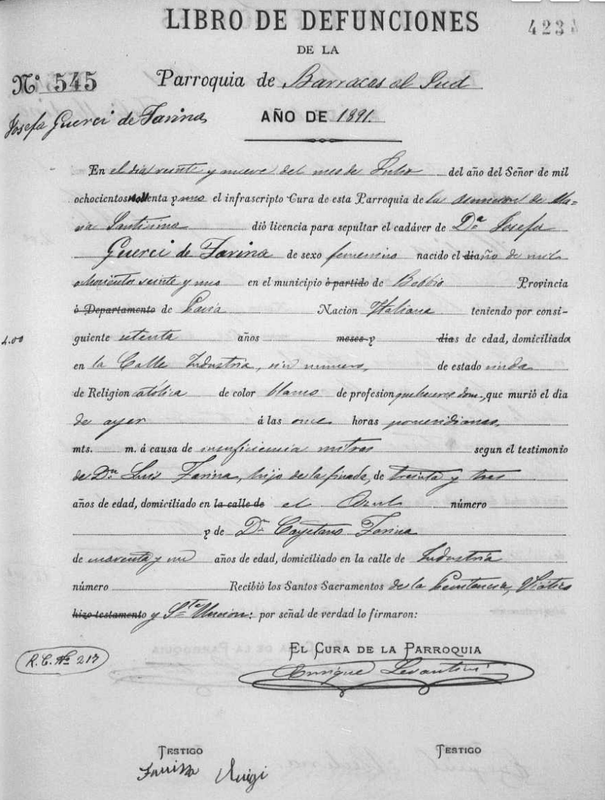 LIBRO DE DEFUNCIONES
423
DE LA
Nº 545
Parroquia de Barracas al Sud
Josefa Guerci de Farina
AÑO DE 1891.
En el dia veinte y nueve del mes de Julio del año del Señor de mil
ochocientos noventa y uno el infrascripto Cura de esta Parroquia de la Asuncion de Ma-
ria Santisima dió licencia para sepultar el cadáver de Dª Josefa
Guerci de Farina de sexo femenino nacido el dia año de mil
ochocientos veinte y uno en el municipio ó partido de Bobbio Provincia
ó Departamento de Pavia Nacion Italiana teniendo por consi-
4.00
guiente setenta años meses y dias de edad, domiciliada
en la Calle Industria, sin numero, de estado viuda
de Religion católica de color blanco de profesion que murió el dia
de ayer á las once horas pomeridianas,
mts. m. á causa de insuficiencia mitral segun el testimonio
de Dn Luis Farina, hijo de la finada, de treinta y tres
años de edad, domiciliado en la calle de el Azul número
y de Dn Cayetano Farina
de cuarenta y un años de edad, domiciliado en la calle de Industria
número Recibió los Santos Sacramentos de la Penitencia, Viatico
hizo testamento y Sta Uncion: por señal de verdad lo firmaron:
R.C. Nº 217
EL CURA DE LA PARROQUIA
Enrique
TESTIGO
TESTIGO
Luigi